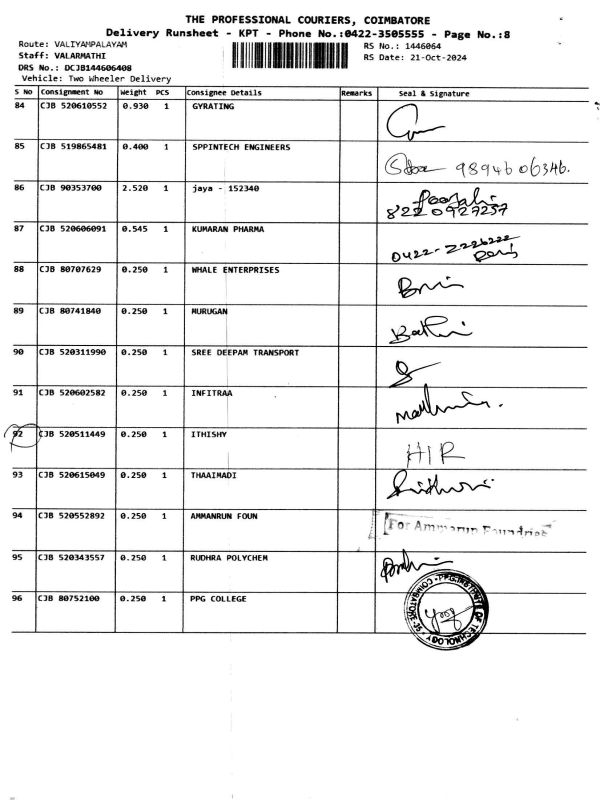 THE PROFESSIONAL COURIERS, COIMBATORE
Delivery Runsheet - KPT - Phone No.:0422-3505555 - Page No.:8
Route: VALIYAMPALAYAM RS No.: 1446064
Staff: VALARMATHI RS Date: 21-Oct-2024
DRS No.: DCJB144606408
Vehicle: Two Wheeler Delivery
S No Consignment No Weight PCS Consignee Details Remarks Seal & Signature
84 CJB 520610552 0.930 1 GYRATING
85 CJB 519865481 0.400 1 SPPINTECH ENGINEERS
9894606346.
86 CJB 90353700 2.520 1 jaya - 152340
8220927257
87 CJB 520606091 0.545 1 KUMARAN PHARMA
0422-2226222
88 CJB 80707629 0.250 1 WHALE ENTERPRISES
89 CJB 80741840 0.250 1 MURUGAN
90 CJB 520311990 0.250 1 SREE DEEPAM TRANSPORT
91 CJB 520602582 0.250 1 INFITRAA
92 CJB 520511449 0.250 1 ITHISHY
HIR
93 CJB 520615049 0.250 1 THAAIMADI
94 CJB 520552892 0.250 1 AMMANRUN FOUN
For Ammarun Foundries
95 CJB 520343557 0.250 1 RUDHRA POLYCHEM
96 CJB 80752100 0.250 1 PPG COLLEGE
PPG INSTITUTE OF TECHNOLOGY COIMBATORE-35